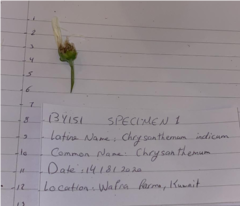 1
2
3
4
5
6
7
8
9
10
11
12
13
BY151 SPECIMEN 1
Latin Name: Chrysanthemum indicum
Common Name: Chrysanthemum
Date: 14/3/2020
Location: Wafra Farms, Kuwait